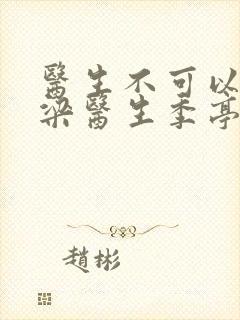 醫生不可以
梁醫生季亭
趙彬